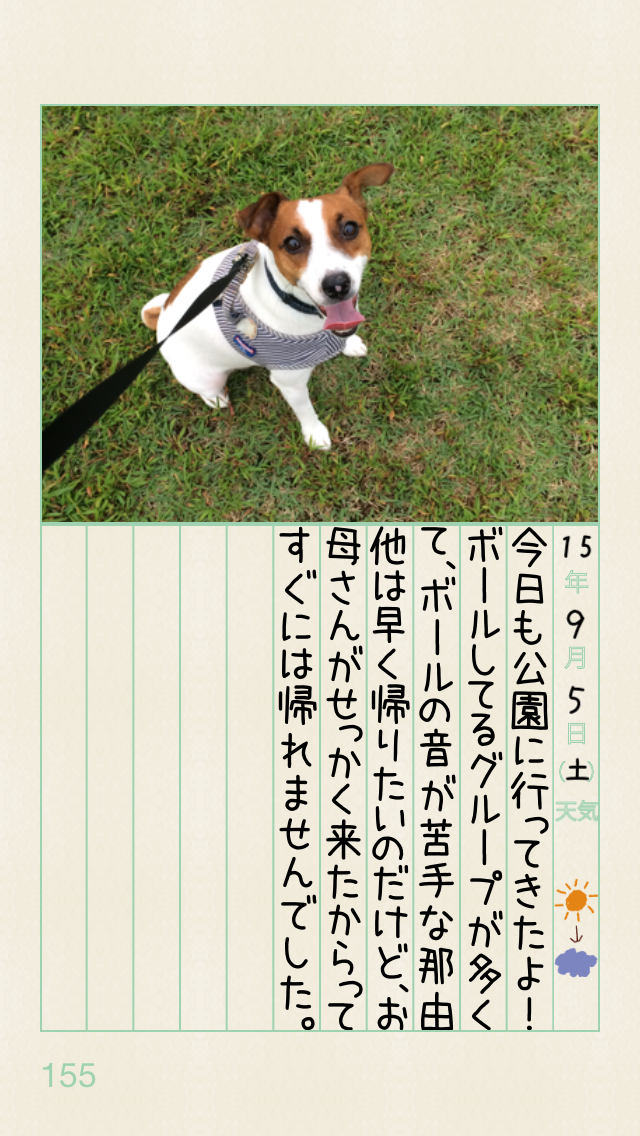 15年9月5日(土)天気
今日も公園に行ってきたよ!
ボールしてるグループが多く
て、ボールの音が苦手な那由
他は早く帰りたいのだけど、お
母さんがせっかく来たからって
すぐには帰れませんでした。
155